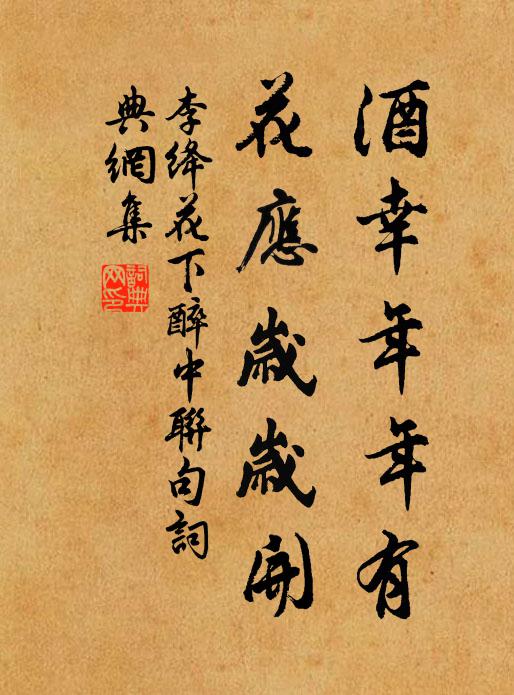 酒幸年年有
花應歲歲開
李绛花下醉中聯句詞
典網集
詞典
网印